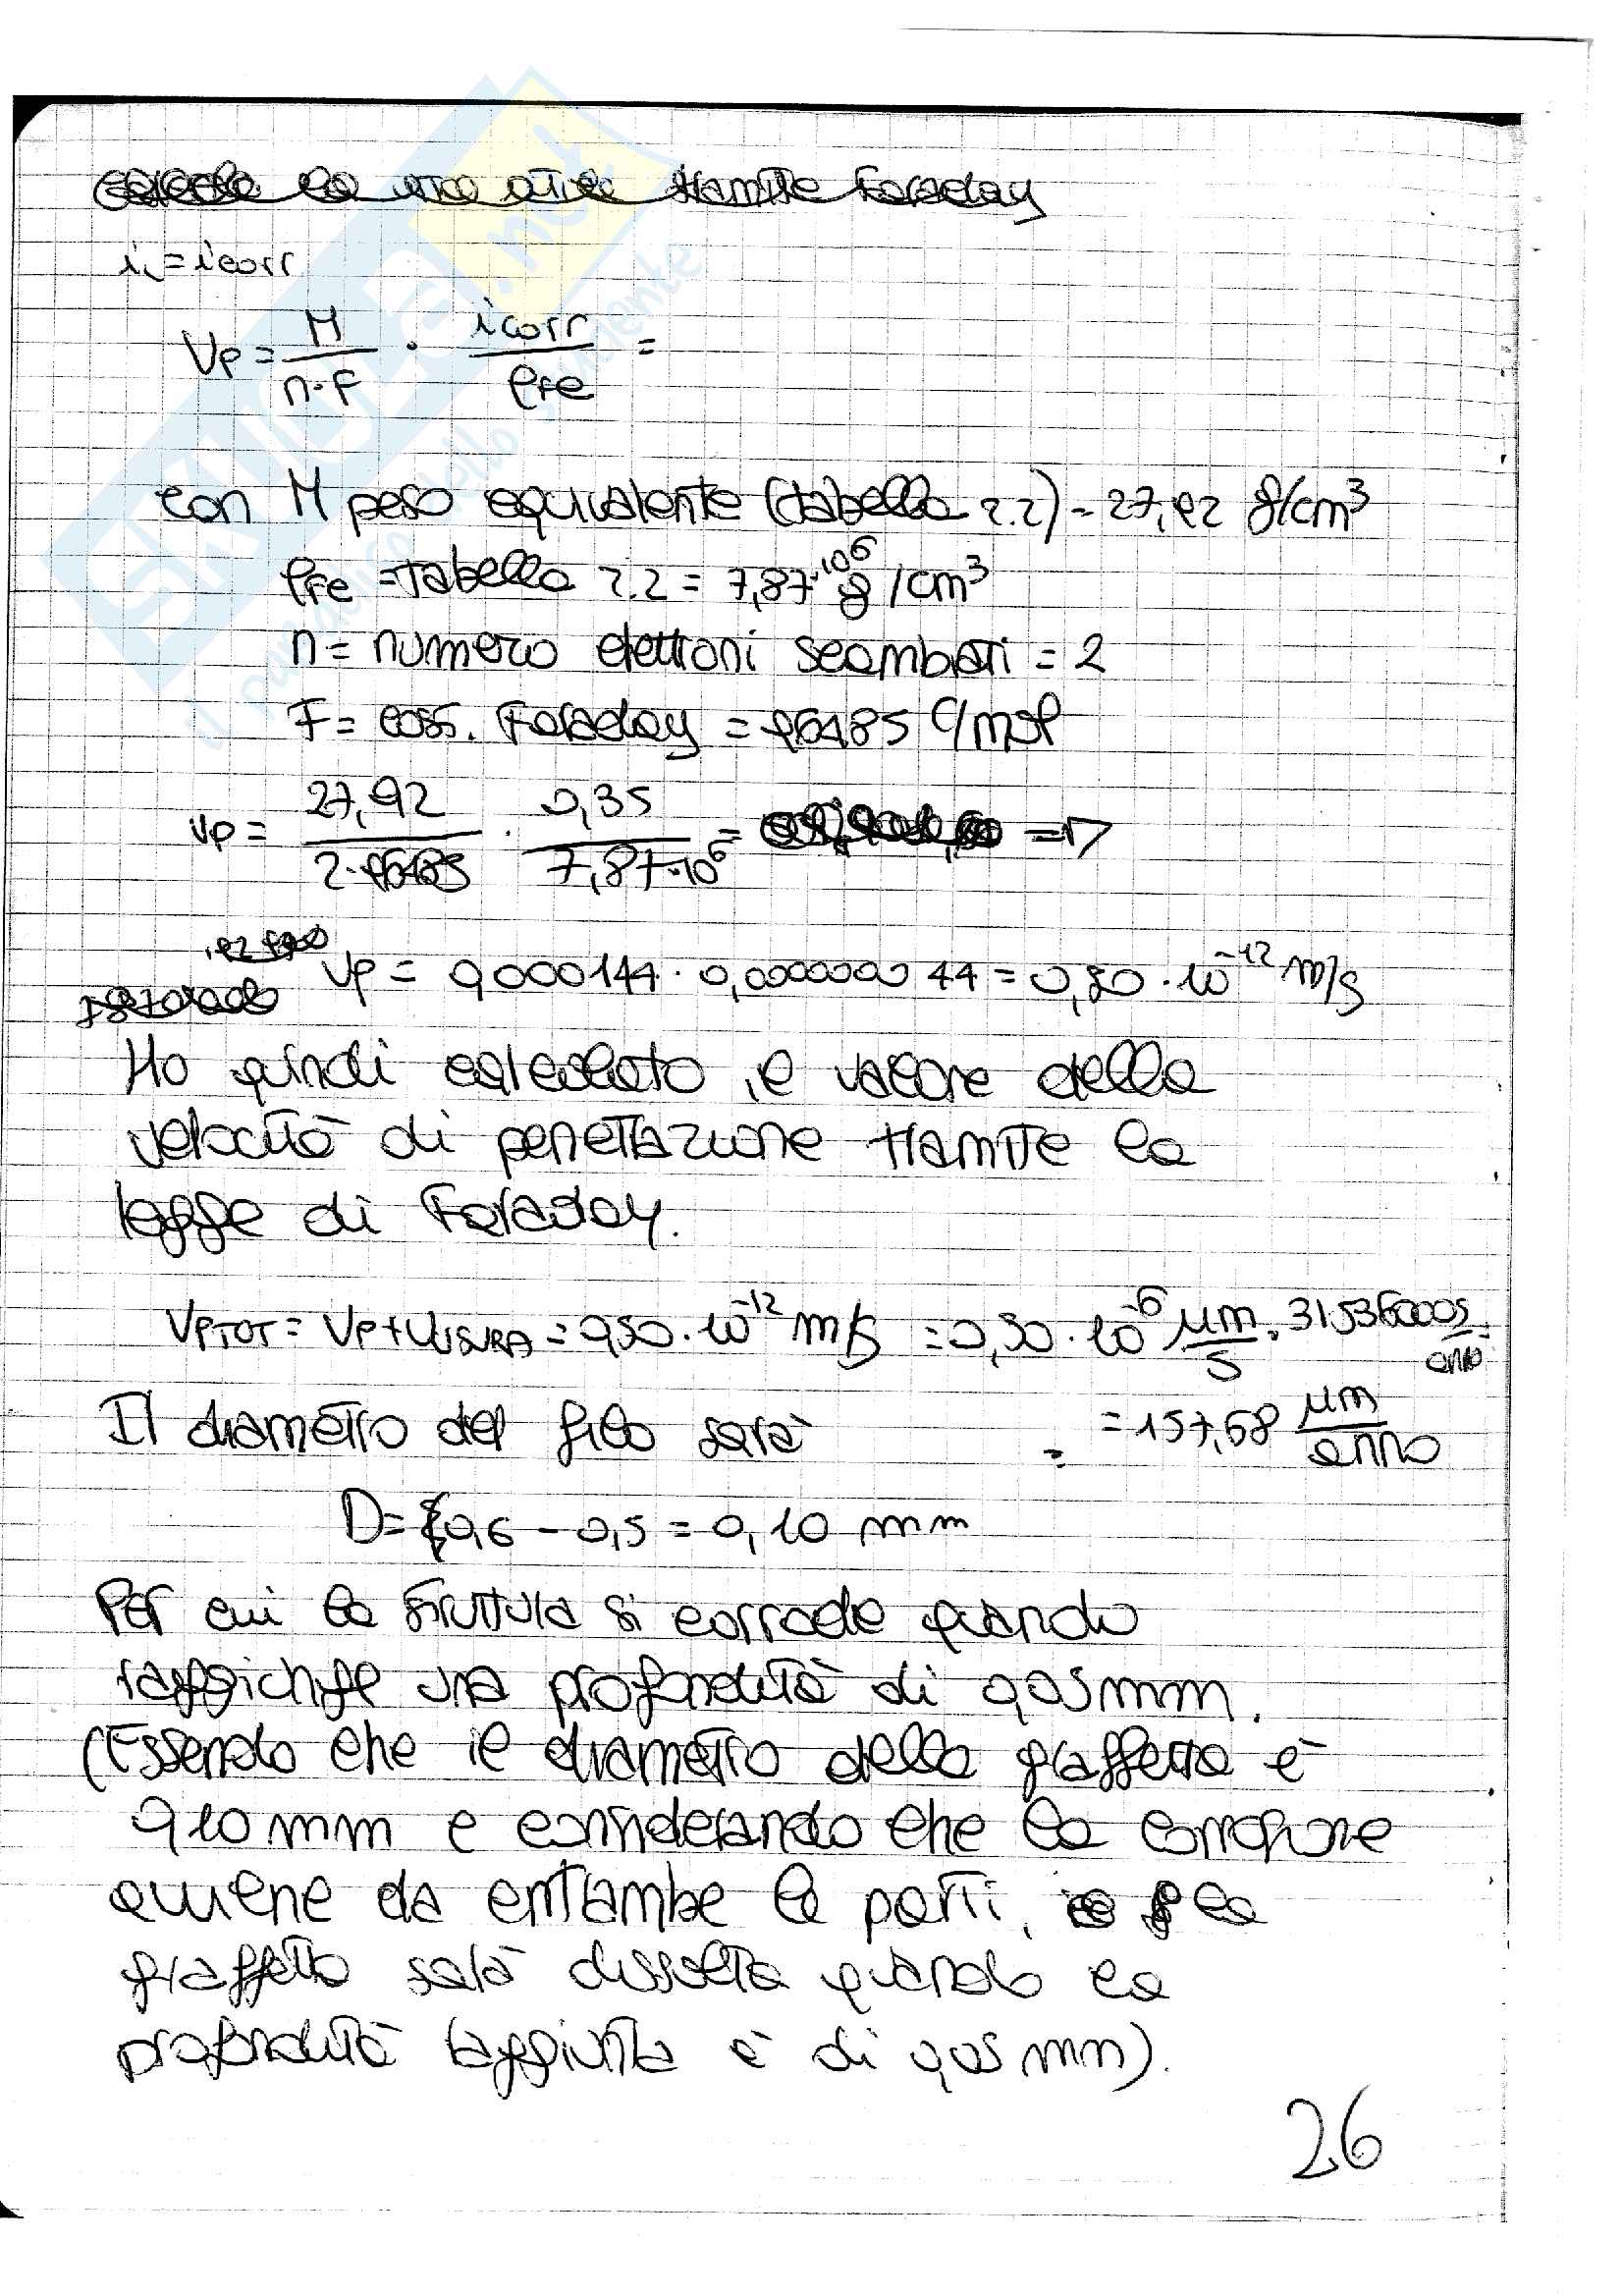 calcolo la tramite Faraday
i = icorr
Vp = M / n·F · icorr / ρFe =
con M peso equivalente (tabella 2.2) = 27,92 g/cm³
ρFe = Tabella 2.2 = 7,87·10⁶ g/cm³
n = numero elettroni scambiati = 2
F = cost. Faraday = 96485 C/mol
Vp = 27,92 / 2·96485 · 0,35 / 7,87·10⁶ = =▷
Vp = 0,000144 · 0,000000044 = 0,50 · 10⁻¹² m/s
Ho quindi calcolato il valore della
velocità di penetrazione tramite la
legge di Faraday.
VPTOT = Vp + VUSURA = 0,50 · 10⁻¹² m/s = 0,50 · 10⁻⁶ μm/s · 31536000 s/anno =
Il diametro del filo sarà = = 157,68 μm/anno
D = 0,6 - 0,5 = 0,10 mm
Per cui la struttura si corrode quando
una profondità di 0,05 mm.
(Essendo che il diametro della graffetta è
0,10 mm e considerando che la corrosione
avviene da entrambe le parti, la
graffetta sarà dissolta quando la
profondità raggiunta è di 0,05 mm).
26